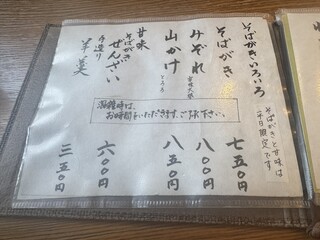 そばがきいろいろ
そばがきと甘味は
平日限定です
そばがき
七五〇円
みぞれ
八〇〇円
山かけ
とろろ
八五〇円
混雑時は、
お時間をいただきます。ご了承下さい。
甘味
そばがき
ぜんざい
六〇〇円
手造り
羊羹
三五〇円